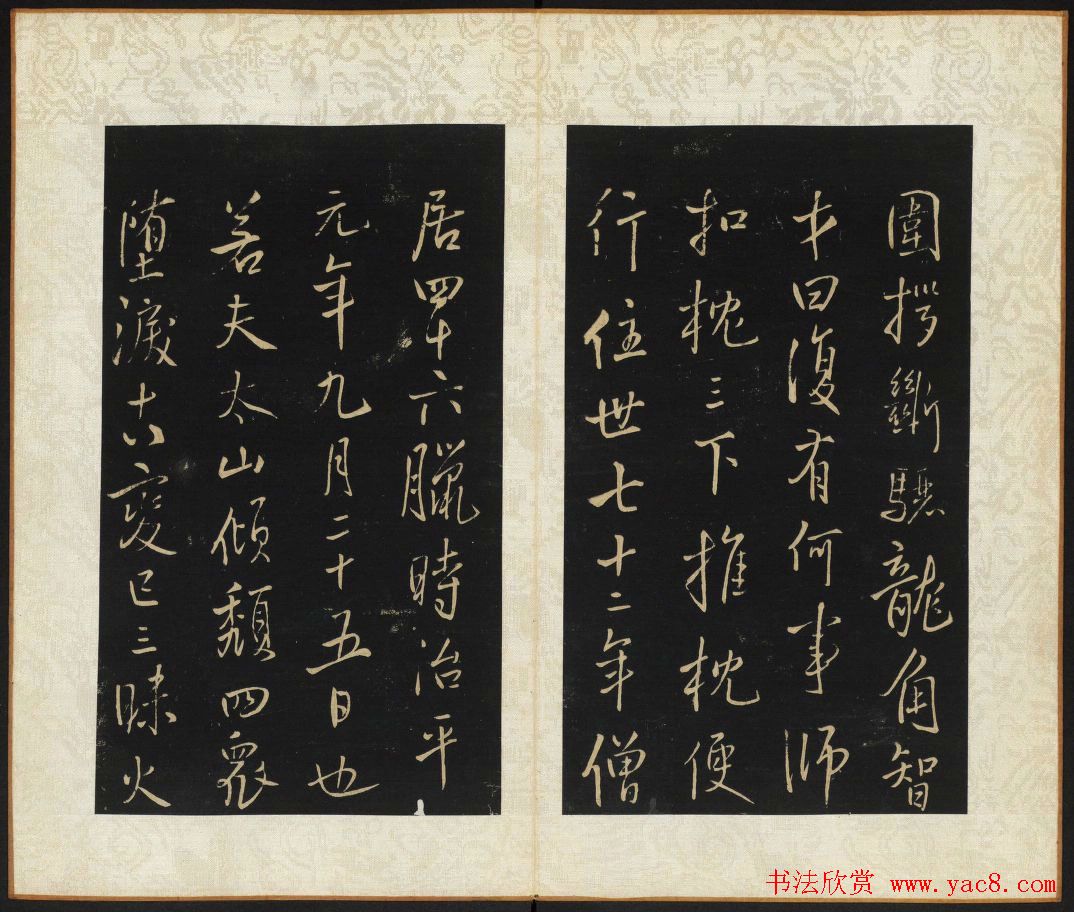 圍拶斷驪龍角智
才曰復有何事師
扣枕三下推枕便
行住世七十二年僧
居四十六臘時治平
元年九月二十五日也
若夫太山傾頹四眾
墮淚十八變已三昧火
书法欣赏 www.yac8.com